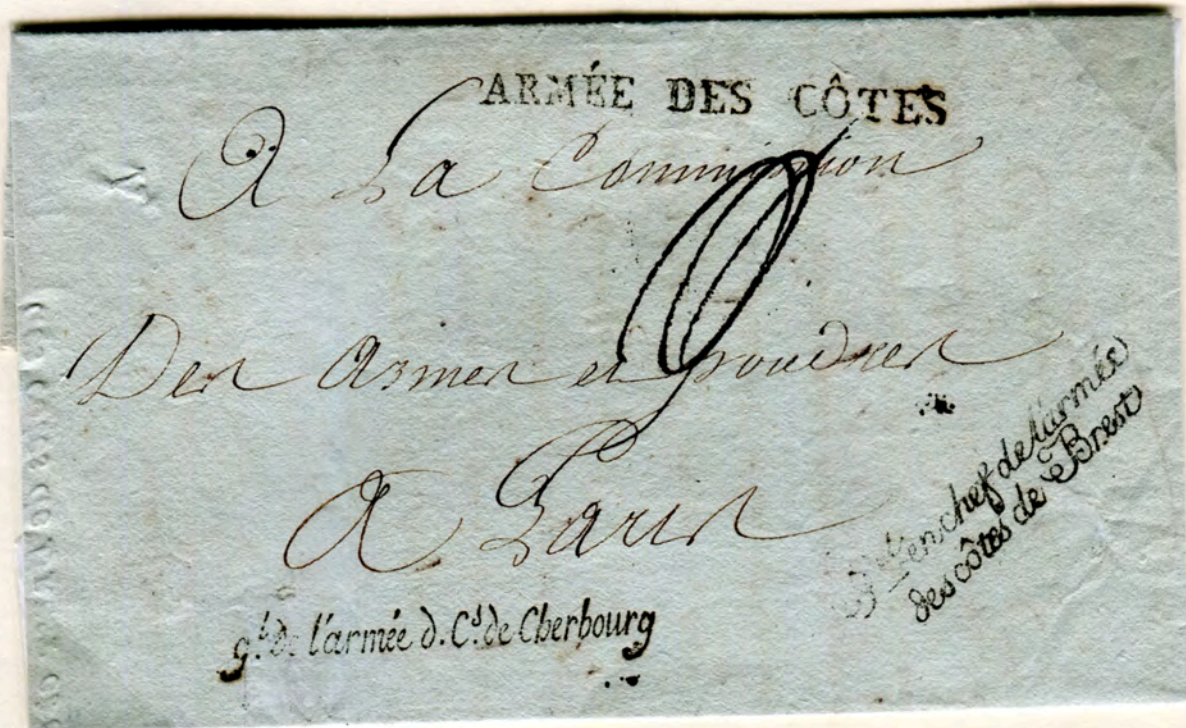 ARMÉE DES CÔTES
A La Commission
Des Armes et poudres
A Paris
G.al en chef de l'armée
des côtes de Brest
g.l de l'armée d. C.s de Cherbourg